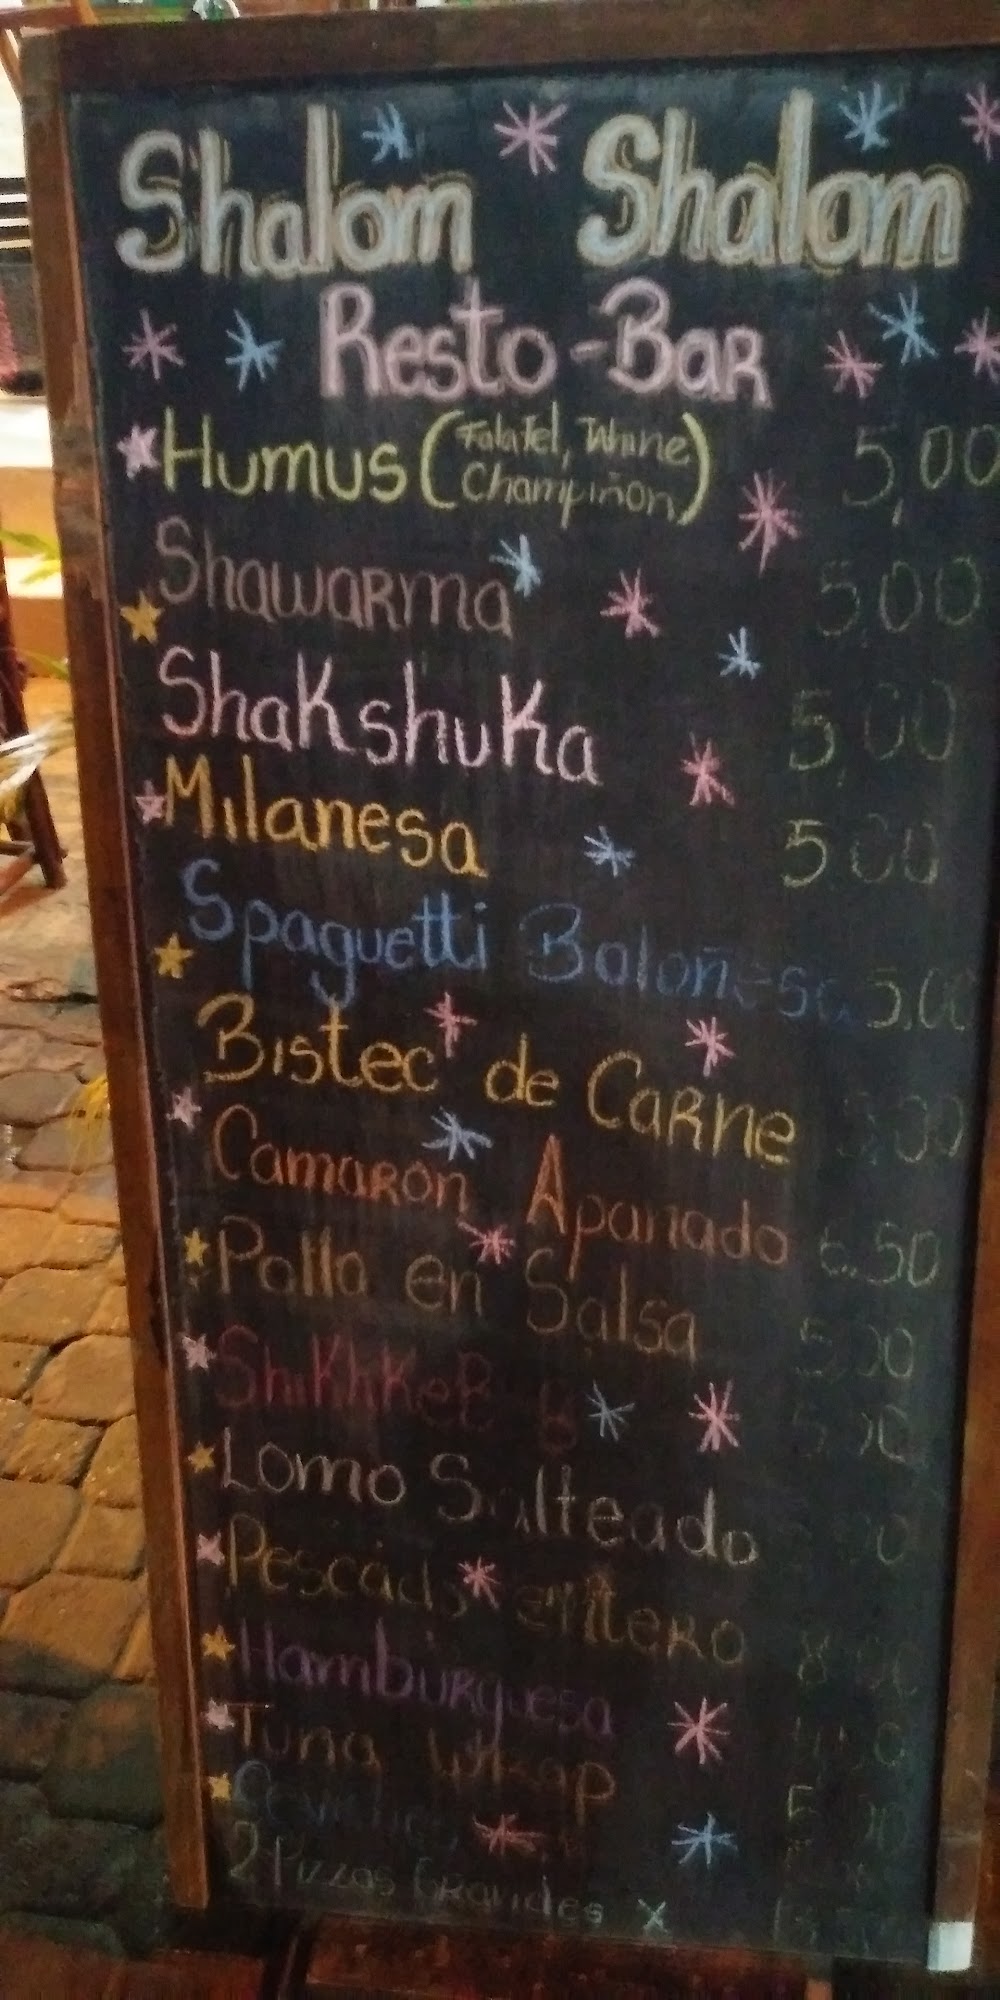 Shalom Shalom
Resto-Bar
Humus (Falafel, Champiñon) 5,00
Shawarma 5,00
Shakshuka 5,00
Milanesa 5,00
Spaguetti Boloñesa 5,00
Bistec de Carne
Camaron Apanado 6.50
Pollo en Salsa 5,00
Lomo Salteado
Pescado entero
Hamburguesa
Tuna Wrap
2 Pizzas Grandes X